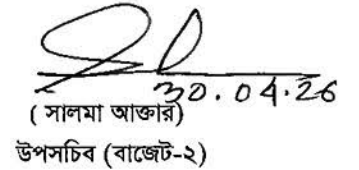 30.04.26
( সালমা আক্তার)
উপসচিব (বাজেট-২)